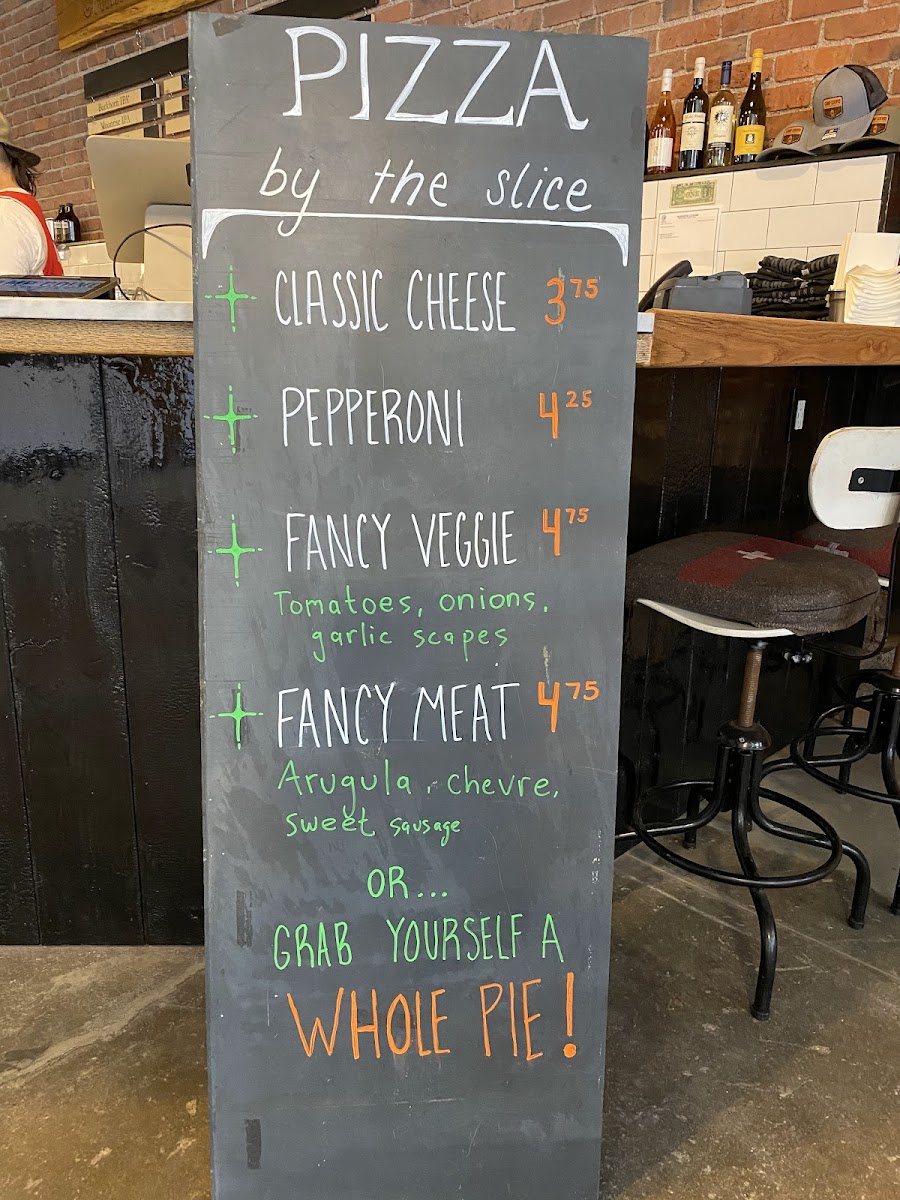 PIZZA
by the slice
CLASSIC CHEESE 3.75
PEPPERONI 4.25
FANCY VEGGIE 4.75
Tomatoes, onions,
garlic scapes
FANCY MEAT 4.75
Arugula, chevre,
sweet sausage
OR...
GRAB YOURSELF A
WHOLE PIE!
Buckhorn IPA
Moonrise IPA